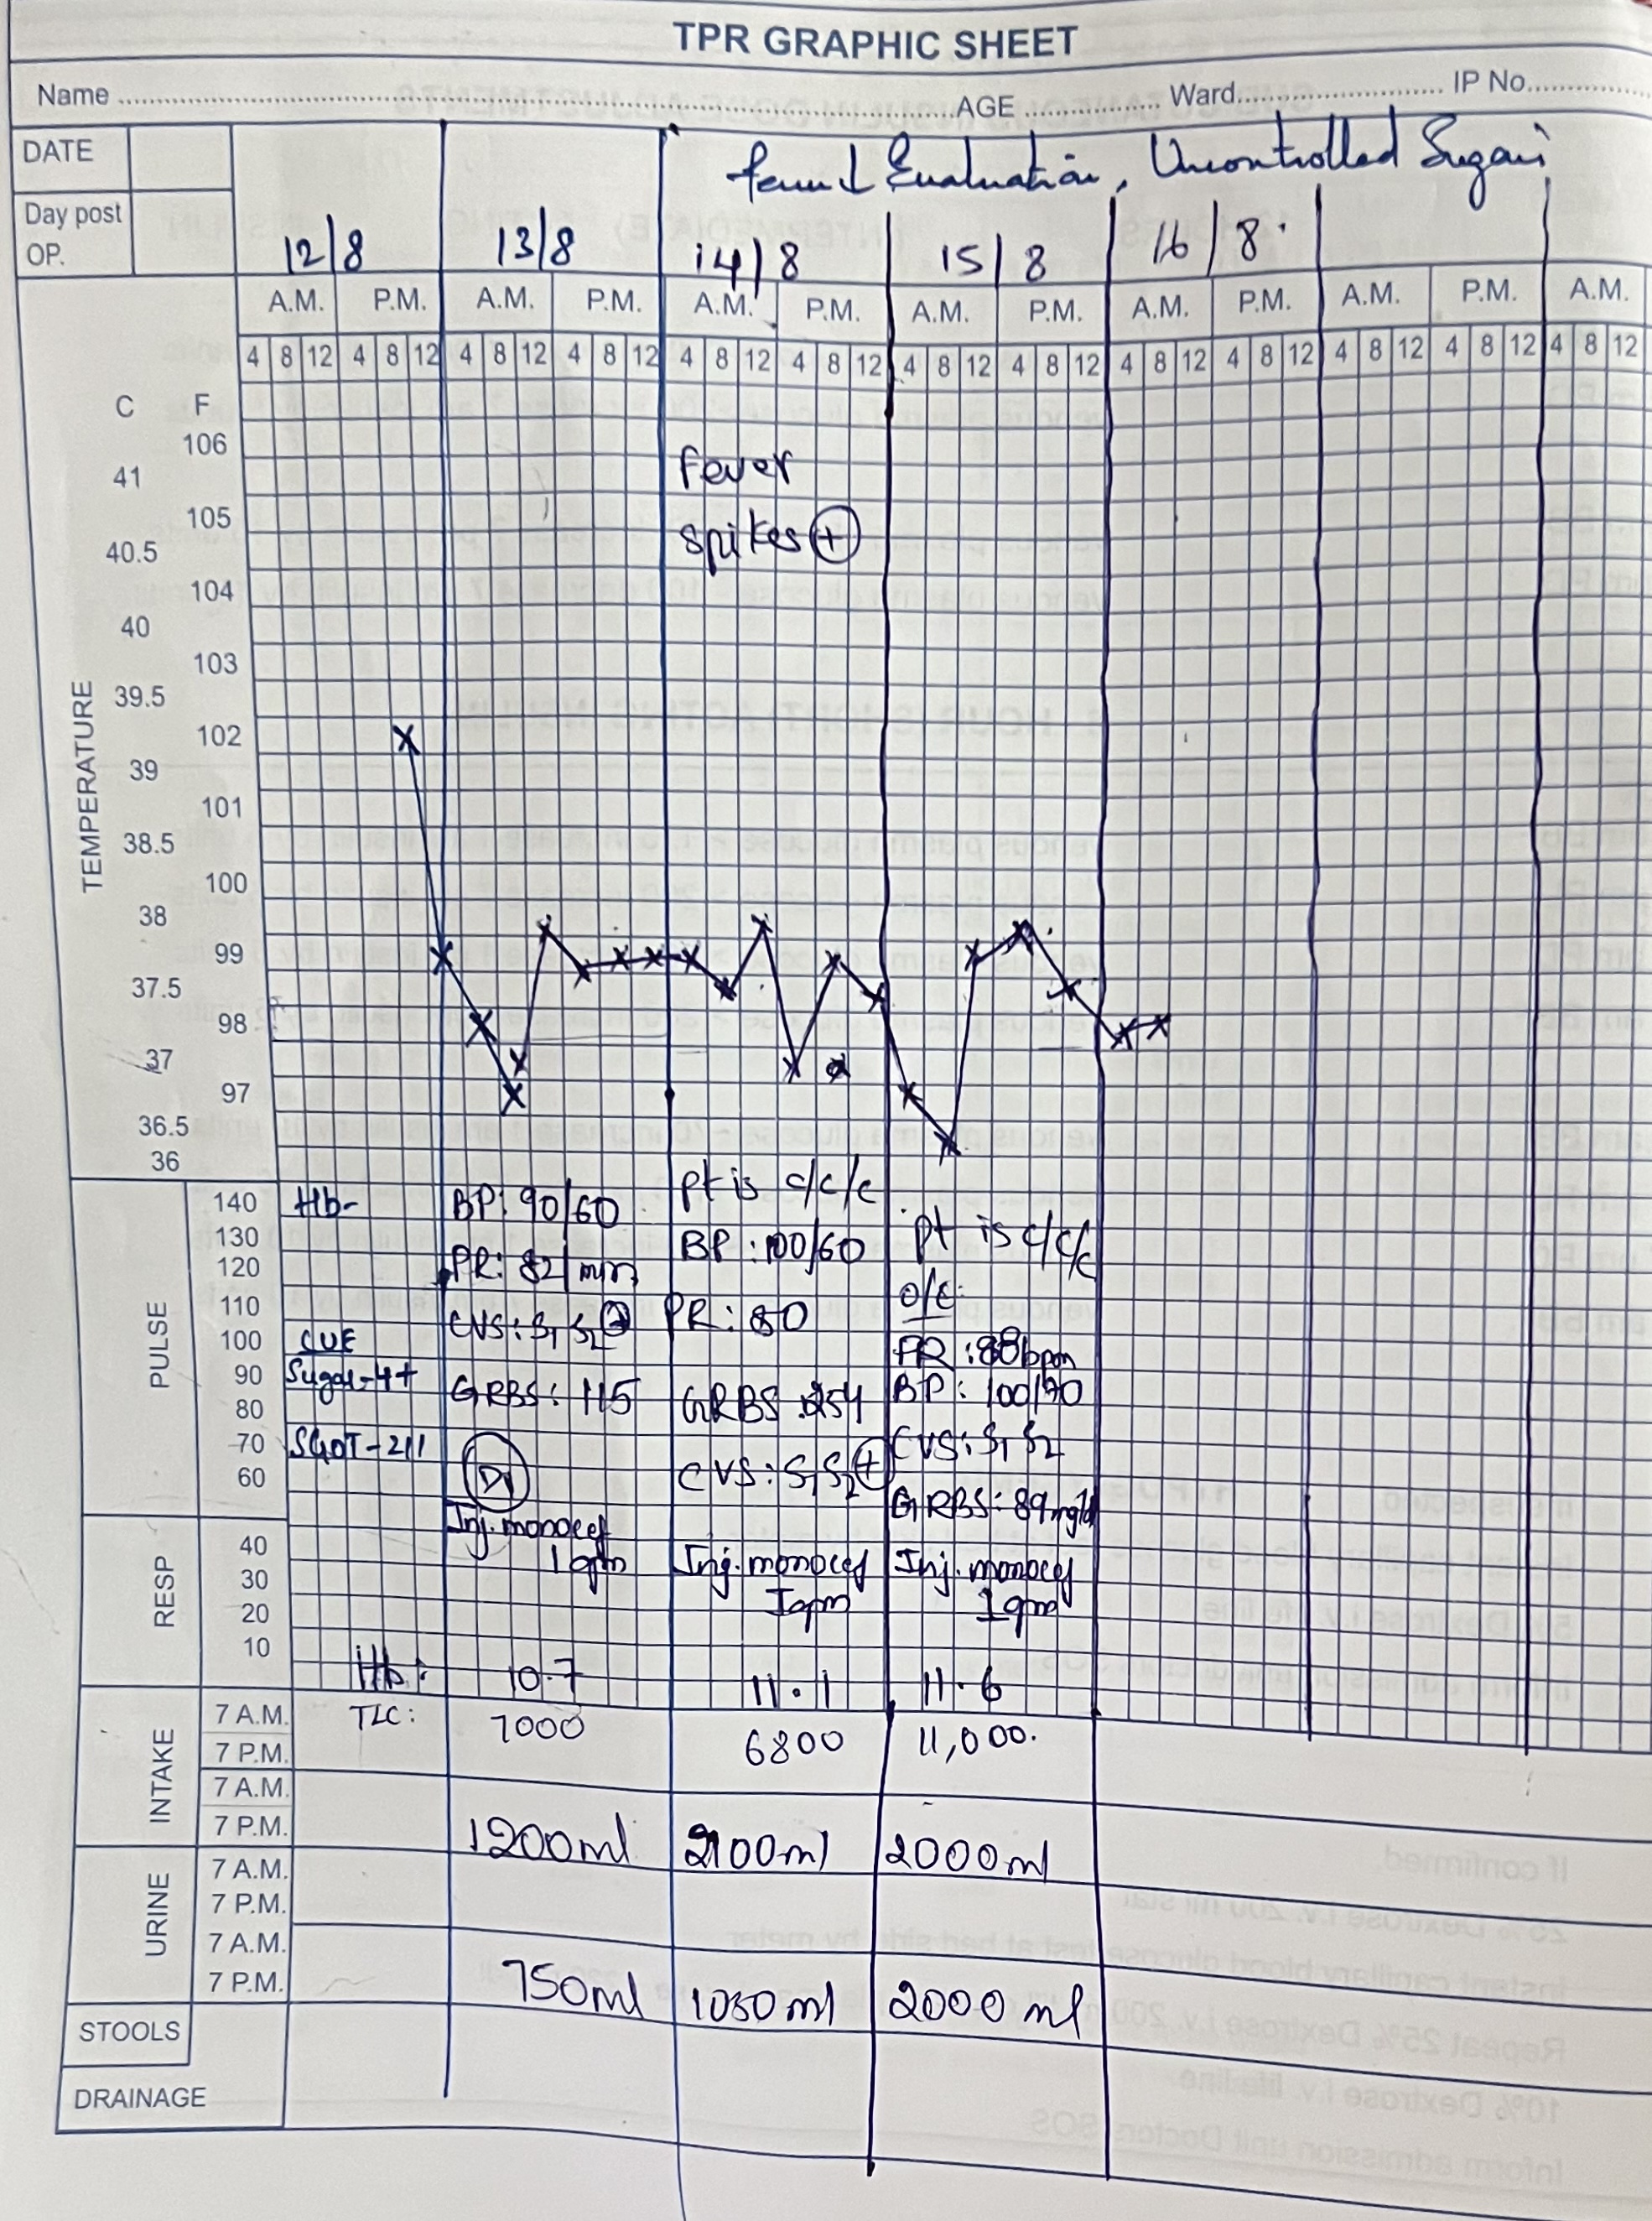 TPR GRAPHIC SHEET
Name AGE Ward IP No.
DATE
Evaluation, Uncontrolled Sugars
Day post
OP.
12/8 13/8 14/8 15/8 16/8
A.M. P.M. A.M. P.M. A.M. P.M. A.M. P.M. A.M. P.M. A.M. P.M. A.M.
4 8 12 4 8 12 4 8 12 4 8 12 4 8 12 4 8 12 4 8 12 4 8 12 4 8 12 4 8 12 4 8 12 4 8 12 4 8 12
TEMPERATURE
C F
106
41
105
40.5
104
40
103
39.5
102
39
101
38.5
100
38
99
37.5
98
37
97
36.5
36
Fever
spikes +
PULSE
140
130
120
110
100
90
80
70
60
RESP
40
30
20
10
Hb-
CUE
Sugar-4+
SGOT-211
BP: 90/60
PR: 82/min
CVS: S1 S2
GRBS: 115
D1
Inj. monocef
1gm
Pt is c/c/c
BP: 100/60
PR: 80
GRBS: 254
CVS: S1S2 +
Inj. monocef
1gm
Pt is c/c/c
O/E:
PR: 88bpm
BP: 100/70
CVS: S1 S2
GRBS: 89mg/dl
Inj. monocef
1gm
Hb: 10.7 11.1 11.6
TLC: 7000 6800 11,000.
INTAKE
7 A.M.
7 P.M.
7 A.M.
7 P.M.
1200ml 2100ml 2000ml
URINE
7 A.M.
7 P.M.
7 A.M.
7 P.M.
750ml 1050ml 2000ml
STOOLS
DRAINAGE